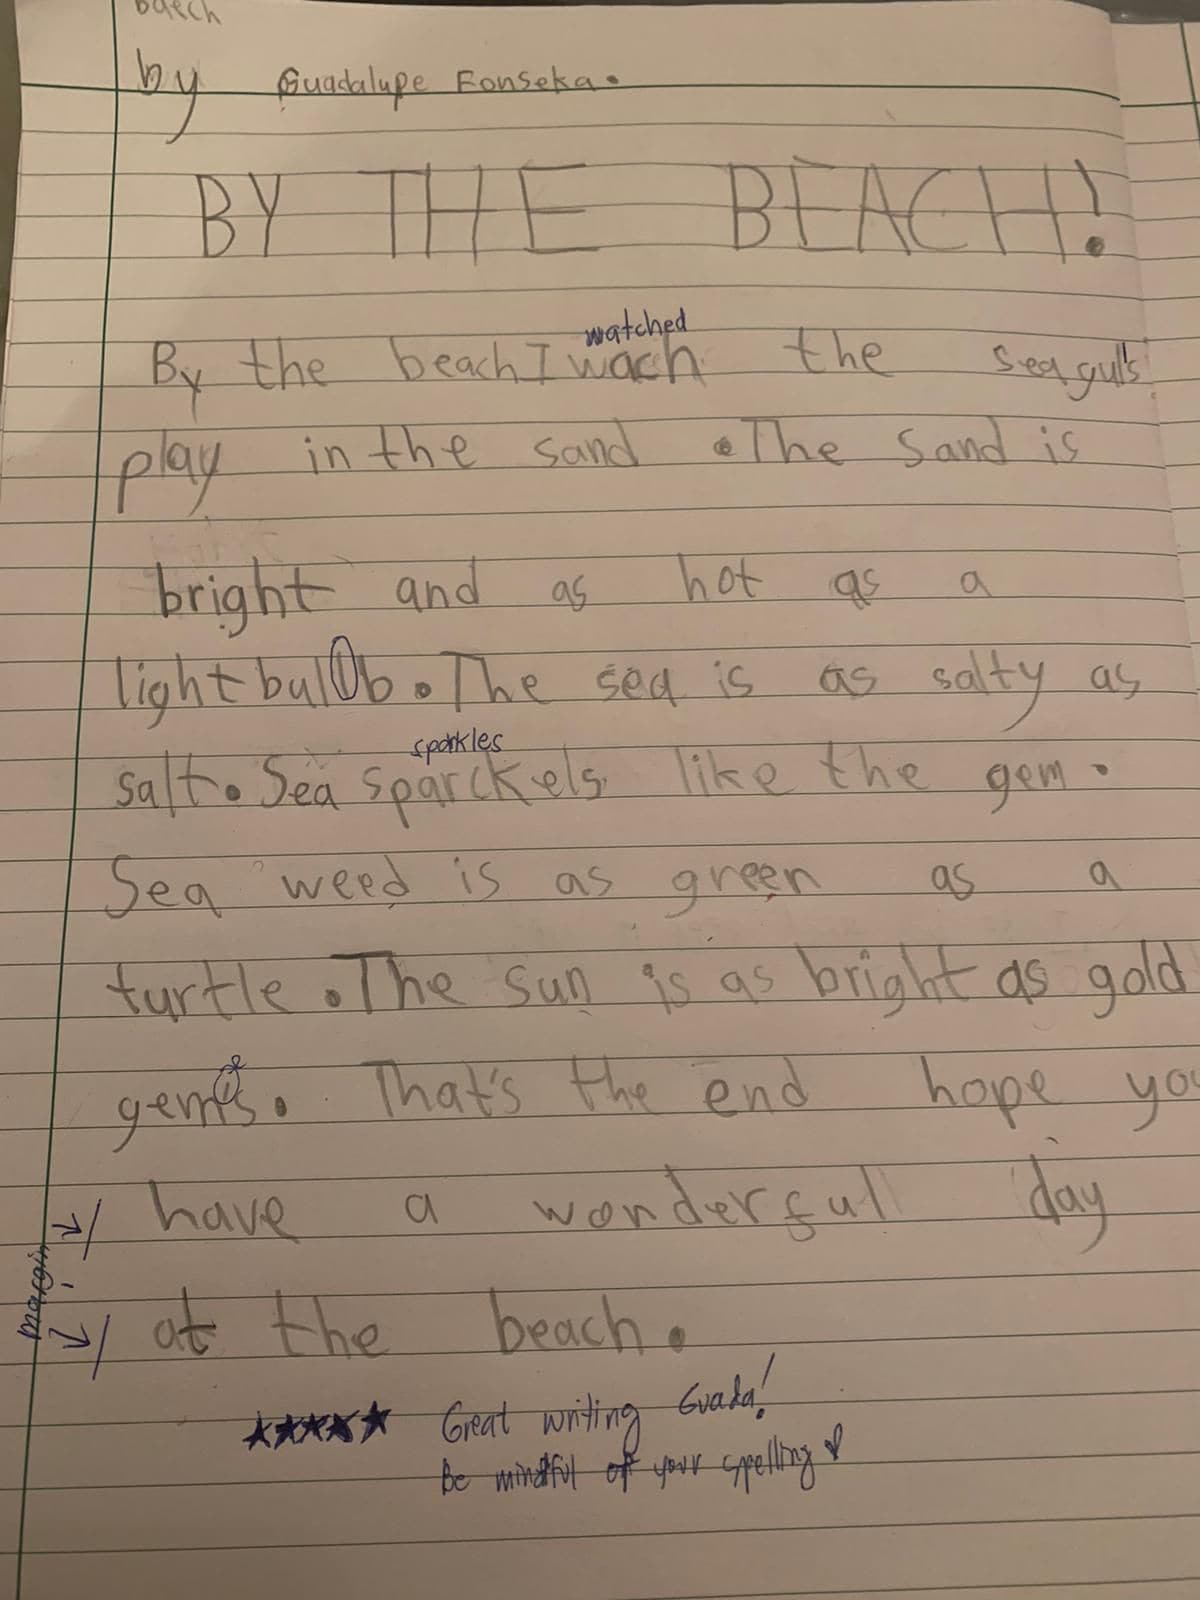 baech
by Guadalupe Fonseka.
BY THE BEACH!
watched
By the beach I wach the seagul's
play in the sand . The Sand is
bright and as hot as a
light bulb. The sea is as salty as
sparkles
salt. Sea sparckels like the gem.
Sea weed is as green as a
turtle. The sun is as bright as gold
gems. That's the end hope you
have a wonderfull day
margin
at the beach.
★★★★★ Great writing Guada!
Be mindful of your spelling